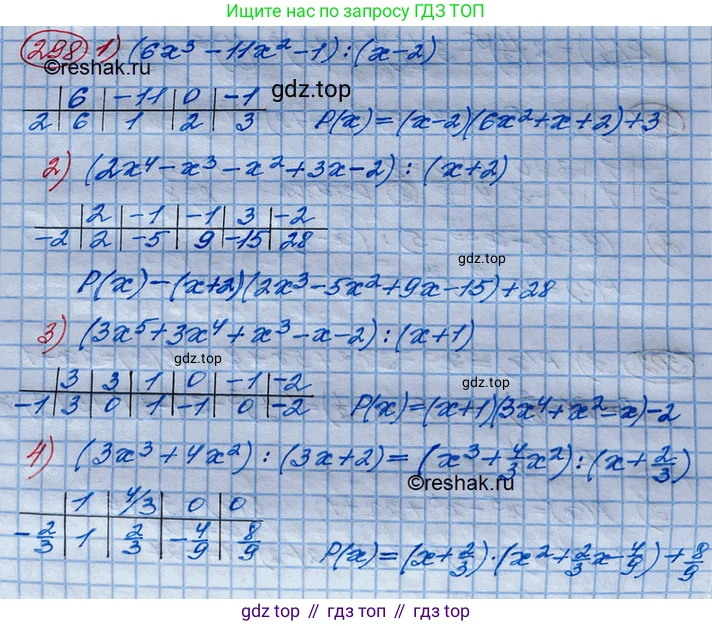 Ищите по запросу ГДЗ ТОП
298 1) (6x³ - 11x² - 1) : (x - 2)
©reshak.ru
gdz.top
6 | -11 | 0 | -1
2 | 6 | 1 | 2 | 3
P(x) = (x-2)(6x²+x+2)+3
2) (2x⁴ - x³ - x² + 3x - 2) : (x+2)
2 | -1 | -1 | 3 | -2
-2 | 2 | -5 | 9 | -15 | 28
gdz.top
P(x) - (x+2)(2x³ - 5x² + 9x - 15) + 28
3) (3x⁵ + 3x⁴ + x³ - x - 2) : (x+1)
gdz.top
3 | 3 | 1 | 0 | -1 | -2
-1 | 3 | 0 | 1 | -1 | 0 | -2
gdz.top
P(x) = (x+1)(3x⁴ + x² - x) - 2
4) (3x³ + 4x²) : (3x+2) = (x³ + 4/3 x²) : (x + 2/3)
©reshak.ru
1 | 4/3 | 0 | 0
-2/3 | 1 | 2/3 | -4/9 | 8/9
P(x) = (x + 2/3) · (x² + 2/3 x - 4/9) + 8/9
gdz.top // гдз.топ // gdz.top // гдз.топ